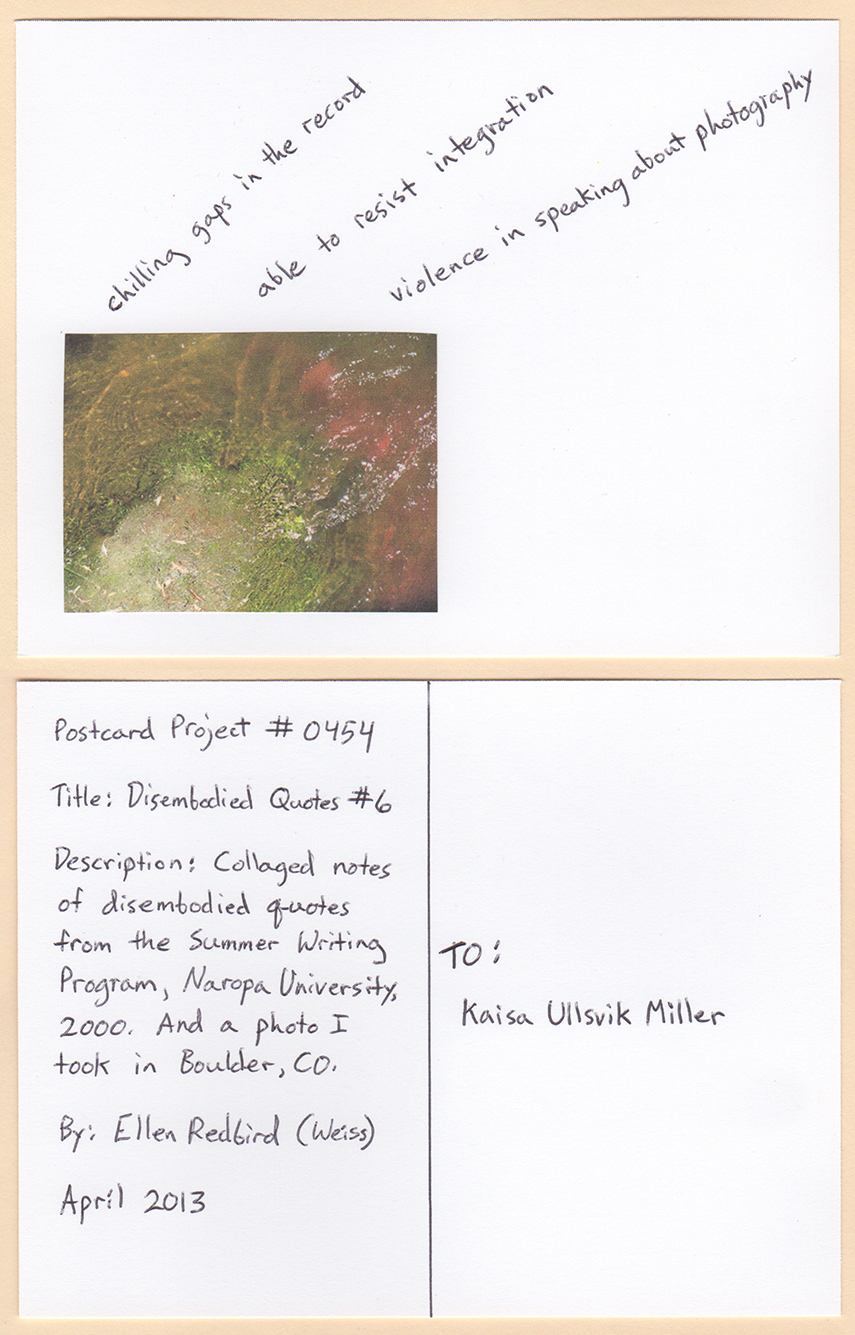 chilling gaps in the record
able to resist integration
violence in speaking about photography
Postcard Project # 0454
Title: Disembodied Quotes #6
Description: Collaged notes
of disembodied quotes
from the Summer Writing
Program, Naropa University,
2000. And a photo I
took in Boulder, CO.
By: Ellen Redbird (Weiss)
April 2013
TO:
Kaisa Ullsvik Miller